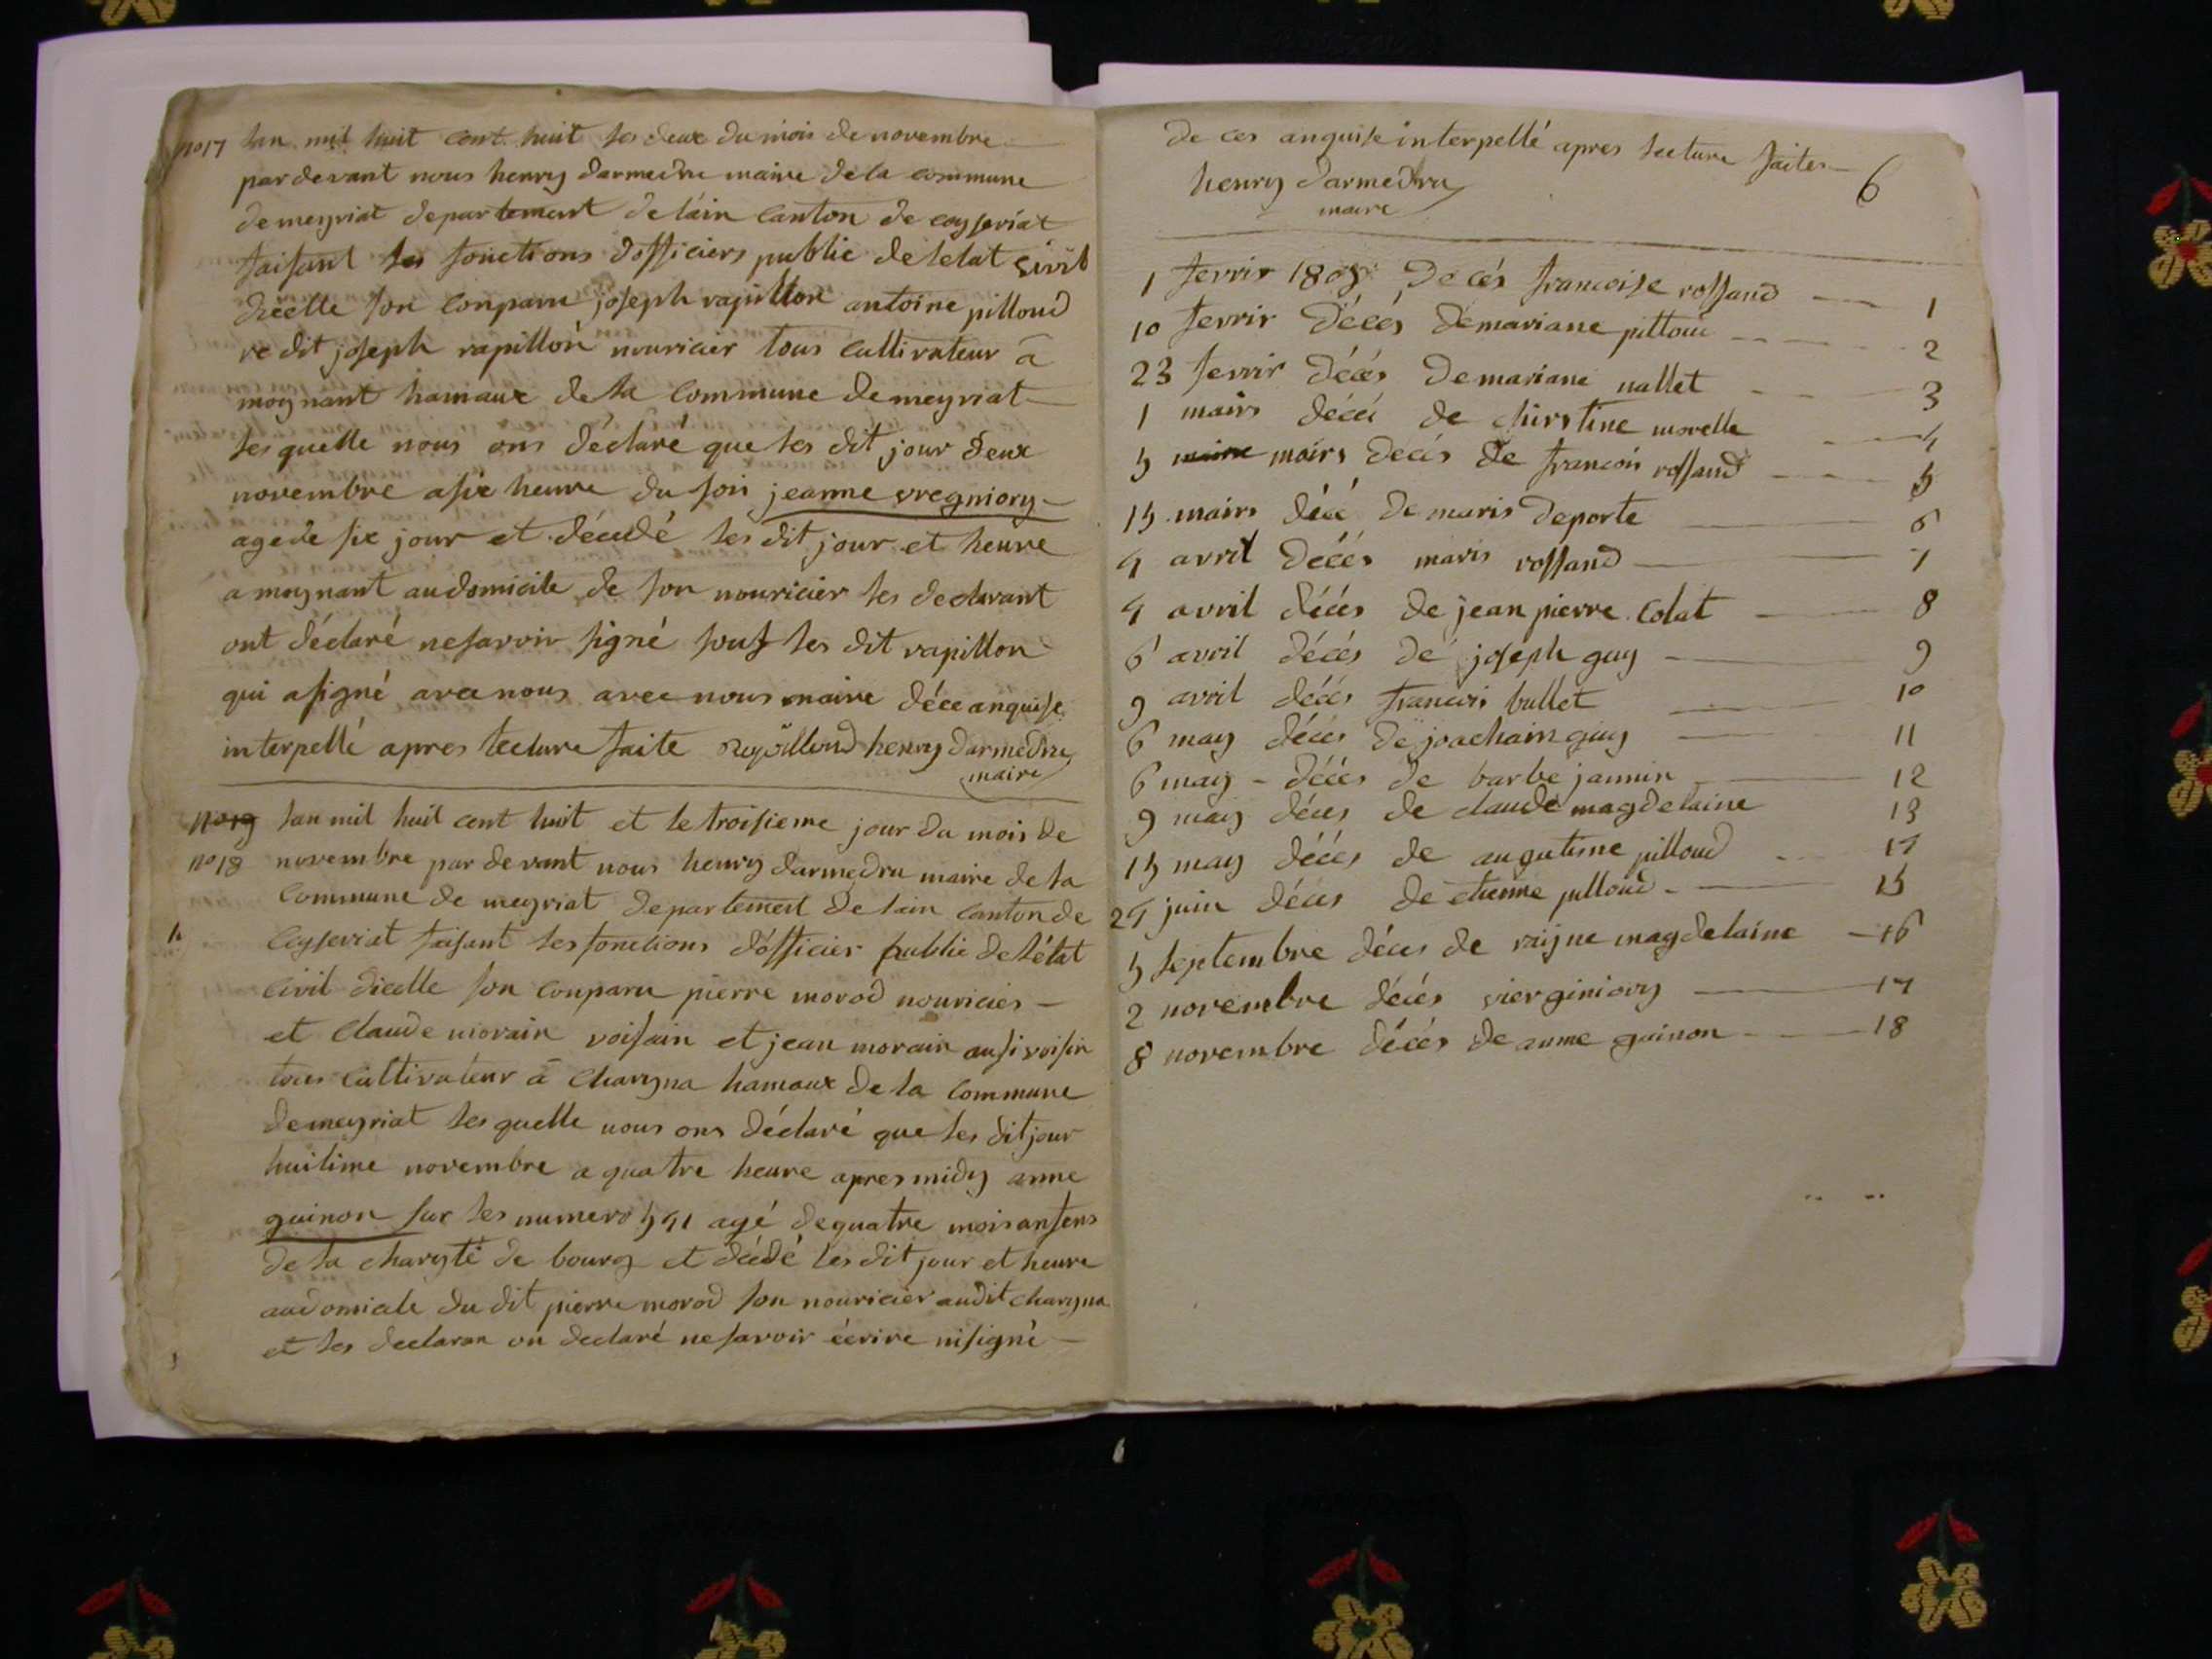 no 17 lan mil huit cent huit les deux du mois de novembre
par devant nous henry darmedru maire de la commune
de meyriat departement de láin Canton de ceyseriat
faisant les fonctions dofficiers public de letat sivil
dicelle son conparu joseph rapillon antoine pilloud
re dit joseph rapillon nouricier tous cultivateur a
moynant hamaux de la Commune de meyriat
les quelle nous ons déclaré que les dit jour deux
novembre a six heure du soir jeanne vregniory
agede six jour et décédé les dit jour et heure
a moynant au domicile de son nouricier les declarant
ont déclaré ne savoir signé souf les dit rapillon
qui a signé avec nous avec nous maire déce anquise
interpellé apres lecture faite henry darmedru
maire
no 19 lan mil huit cent huit et le troisieme jour du mois de
no 18 novembre par devant nous henry darmedru maire de la
Commune de meyriat departement de lain Canton de
Ceyseriat faisant les fonctions dófficier public de létat
Civil dicelle son Conparu pierre morod nouricier
et Claude morain voisain et jean morain ausi voisin
tous Cultivateur a Charyna hamaux de la Commune
de meyriat les quelle nous ons déclaré que les dit jour
huitime novembre a quatre heure apres midy anne
guinon sur les numero 541 agé de quatre mois anfens
de la charyté de bourg et décédé les dit jour et heure
au domicile du dit pierre morod son nouricier audit charyna
et les declaran on declaré ne savoir écrire ni signé
de ces anquise interpellé apres lecture faites
6
henry darmedru
maire
1 fevrir 1808 deces francoise rossand 1
10 fevrir décés de mariane pilloud 2
23 fevrir décés de mariane vallet 3
1 mairs décé de chirstine morelle 4
5 mairs decés de francois rossand 5
15 mairs décé de maris deporte 6
4 avril décés maris rossand 7
4 avril décés de jean pierre Colat 8
6 avril décés de joseph guy 9
9 avril décés francois bullet 10
6 may décés de joachaim guy 11
6 may décés de barbe jannin 12
9 may déces de claude magdelaine 13
15 may décés de augutisne pilloud 14
24 juin décés de etienne pilloud 15
5 septembre déces de raijne magdelaine 16
2 novembre décés vierginiory 17
8 novembre décés de anne guinon 18